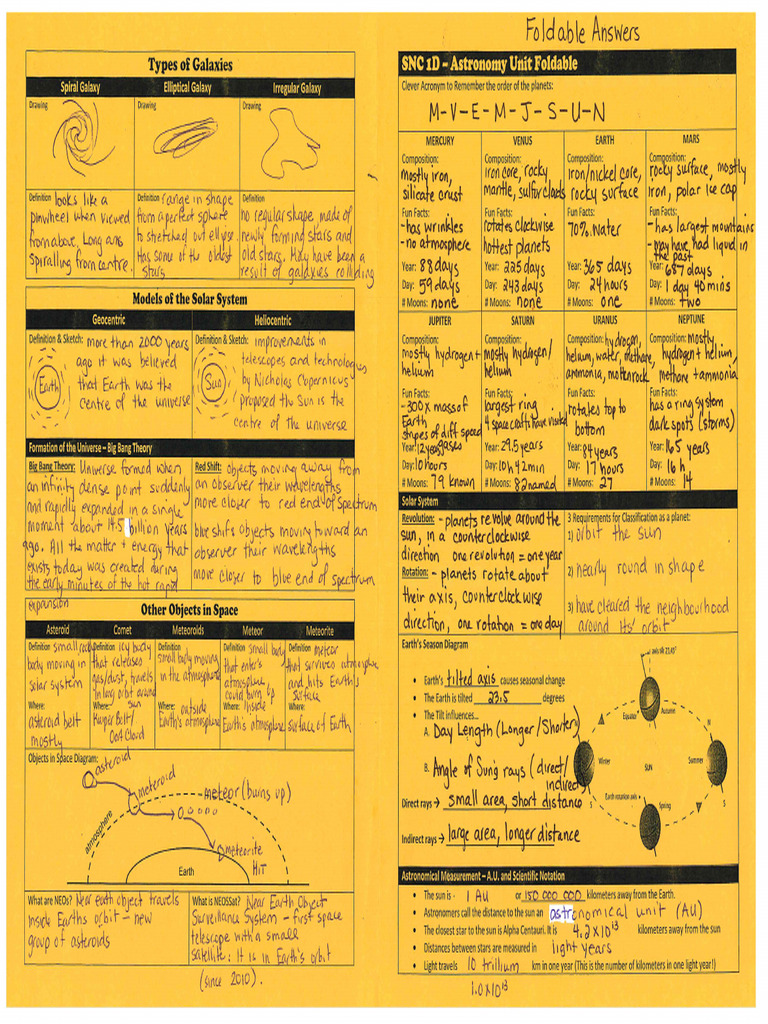 Foldable Answers
Types of Galaxies
Spiral Galaxy
Elliptical Galaxy
Irregular Galaxy
Drawing
Drawing
Drawing
Definition looks like a
pinwheel when viewed
from above. Long arms
spiralling from centre.
Definition range in shape
from a perfect sphere
to stretched out ellipse.
Has some of the oldest
stars
Definition
no regular shape made of
newly forming stars and
old stars. May have been a
result of galaxies colliding
Models of the Solar System
Geocentric
Heliocentric
Definition & Sketch: more than 2000 years
ago it was believed
that Earth was the
centre of the universe
Earth
Definition & Sketch: improvements in
telescopes and technologies
by Nicholas Copernicus
proposed the Sun is the
centre of the universe
Sun
Formation of the Universe – Big Bang Theory
Big Bang Theory: Universe formed when
an infinity dense point suddenly
and rapidly expanded in a single
moment about 14.5 billion years
ago. All the matter + energy that
exists today was created during
the early minutes of the hot rapid
expansion
Red Shift: objects moving away from
an observer their wavelengths
more closer to red end of spectrum
blue shifts objects moving toward an
observer their wavelengths
more closer to blue end of spectrum
Other Objects in Space
Asteroid
Comet
Meteoroids
Meteor
Meteorite
Definition small rocky
body moving in
solar system
Where:
asteroid belt
mostly
Definition icy body
that releases
gas/dust, travels
in long orbit around
sun
Where:
Kuiper Belt/
Oort Cloud
Definition
small body moving
in the atmosphere
Where: outside
Earth's atmosphere
Definition small body
that enter's
atmosphere
could burn up
Where: Inside
Earth's atmosphere
Definition meteor
that survived atmosphere
and hits Earth's
surface
Where:
surface of Earth
Objects in Space Diagram:
asteroid
meteoroid
meteor (burns up)
atmosphere
meteorite
HIT
Earth
What are NEOs? Near earth object travels
inside Earths orbit – new
group of asteroids
What is NEOSSat? Near Earth Object
Surveillance System – first space
telescope with a small
satellite: It is in Earth's orbit
(since 2010).
SNC 1D – Astronomy Unit Foldable
Clever Acronym to Remember the order of the planets:
M-V-E-M-J-S-U-N
MERCURY
Composition:
mostly iron,
silicate crust
Fun Facts:
-has wrinkles
-no atmosphere
Year: 88 days
Day: 59 days
# Moons: none
VENUS
Composition:
iron core, rocky
mantle, sulfur clouds
Fun Facts:
rotates clockwise
hottest planets
Year: 225 days
Day: 243 days
# Moons: none
EARTH
Composition:
iron/nickel core,
rocky surface
Fun Facts:
70% Water
Year: 365 days
Day: 24 hours
# Moons: one
MARS
Composition:
rocky surface, mostly
iron, polar ice cap
Fun Facts:
-has largest mountains
-may have had liquid in
the past
Year: 687 days
Day: 1 day 40 mins
# Moons: two
JUPITER
Composition:
mostly hydrogen +
helium
Fun Facts:
-300x mass of
Earth
stripes of diff speed
gases
Year: 12 years
Day: 10 hours
# Moons: 79 known
SATURN
Composition:
mostly hydrogen/
helium
Fun Facts:
largest ring
4 space crafts have visited
Year: 29.5 years
Day: 10h 42min
# Moons: 82 named
URANUS
Composition: hydrogen,
helium, water, methane,
ammonia, molten rock
Fun Facts:
rotates top to
bottom
Year: 84 years
Day: 17 hours
# Moons: 27
NEPTUNE
Composition: mostly
hydrogen + helium,
methane + ammonia
Fun Facts:
has a ring system
dark spots (storms)
Year: 165 years
Day: 16 h
# Moons: 14
Solar System
Revolution: - planets revolve around the
sun, in a counterclockwise
direction one revolution = one year
Rotation: - planets rotate about
their axis, counterclockwise
direction, one rotation = one day
3 Requirements for Classification as a planet:
1) orbit the sun
2) nearly round in shape
3) have cleared the neighbourhood
around its' orbit
Earth's Season Diagram
• Earth's tilted axis causes seasonal change
• The Earth is tilted 23.5 degrees
• The Tilt influences...
A. Day Length (Longer/Shorter)
B. Angle of Sun's rays (direct/
indirect)
Direct rays → small area, short distance
Indirect rays → large area, longer distance
axis tilt 23.45°
Equator
Autumn
N
Winter
SUN
Summer
Earth rotation axis
Spring
S
S
Astronomical Measurement – A.U. and Scientific Notation
• The sun is - 1 AU or 150 000 000 kilometers away from the Earth.
• Astronomers call the distance to the sun an astronomical unit (AU)
• The closest star to the sun is Alpha Centauri. It is 4.2x10¹³ kilometers away from the sun
• Distances between stars are measured in light years
• Light travels 10 trillium km in one year (This is the number of kilometers in one light year!)
1.0x10¹³